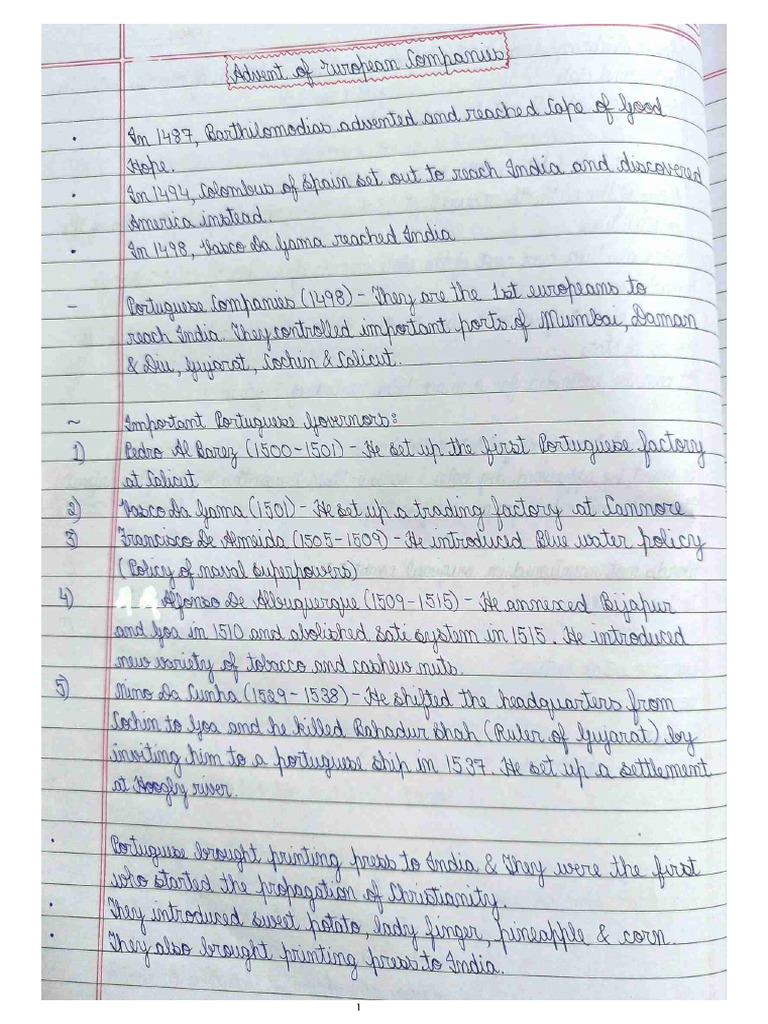 Advent of European Companies
• In 1487, Barthilomodias advented and reached Cape of Good
Hope.
• In 1494, Colombus of Spain set out to reach India and discovered
America instead.
• In 1498, Vasco Da Gama reached India
- Portuguese Companies (1498) - They are the 1st europeans to
reach India. They controlled important ports of Mumbai, Daman
& Diu, Gujarat, Cochin & Calicut.
~ Important Portuguese Governors:
1) Pedro Al Barez (1500-1501) - He set up the first Portuguese factory
at Calicut
2) Vasco Da Gama (1501) - He set up a trading factory at Cannore
3) Francisco De Almeida (1505-1509) - He introduced Blue water policy
(Policy of naval superpowers)
4) Alfonso De Albuquerque (1509-1515) - He annexed Bijapur
and Goa in 1510 and abolished sati system in 1515. He introduced
new variety of tobacco and cashew nuts.
5) Nino Da Cunha (1529-1538) - He shifted the headquarters from
Cochin to Goa and he killed Bahadur Shah (Ruler of Gujarat) by
inviting him to a portuguese ship in 1537. He set up a settlement
at Hoogly river.
• Portuguese brought printing press to India & They were the first
who started the propagation of Christianity.
• They introduced sweet potato, lady finger, pineapple & corn.
• They also brought printing press to India.
1